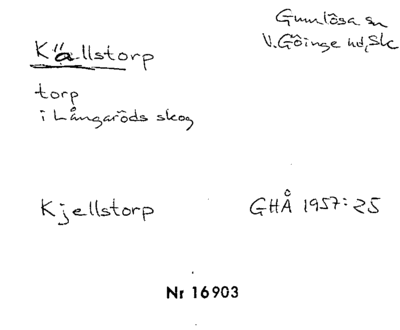 Gumlösa sn
V. Göinge hd, Sk
Källstorp
torp
i Långaröds skog
Kjellstorp
GHÅ 1957:25
Nr 16903